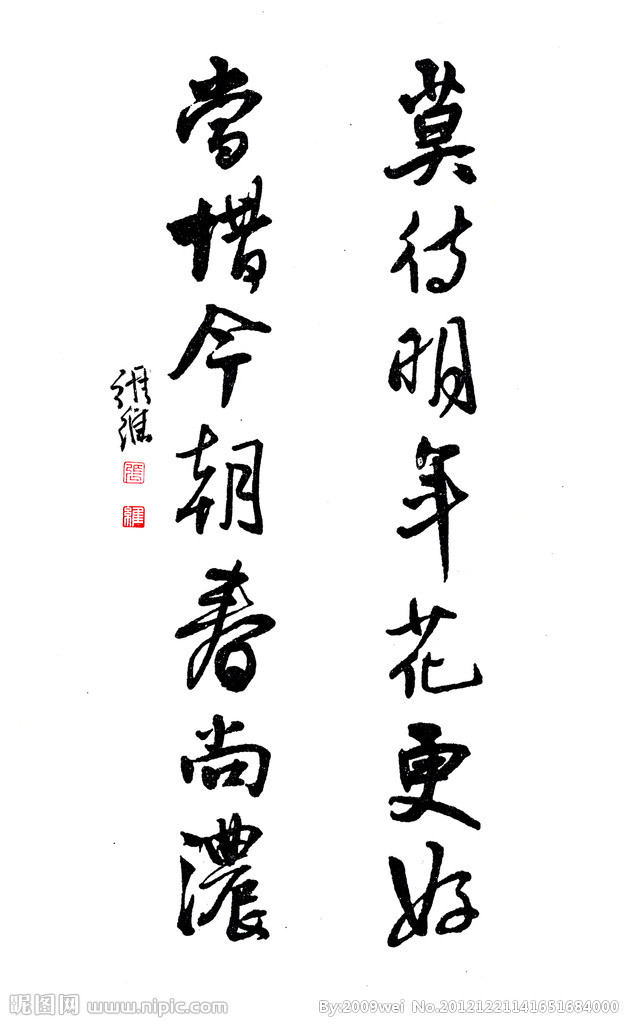 莫待明年花更好
當惜今朝春尚濃
張維
張
維
昵图网 www.nipic.com
By:2009wei No.20121221141651684000